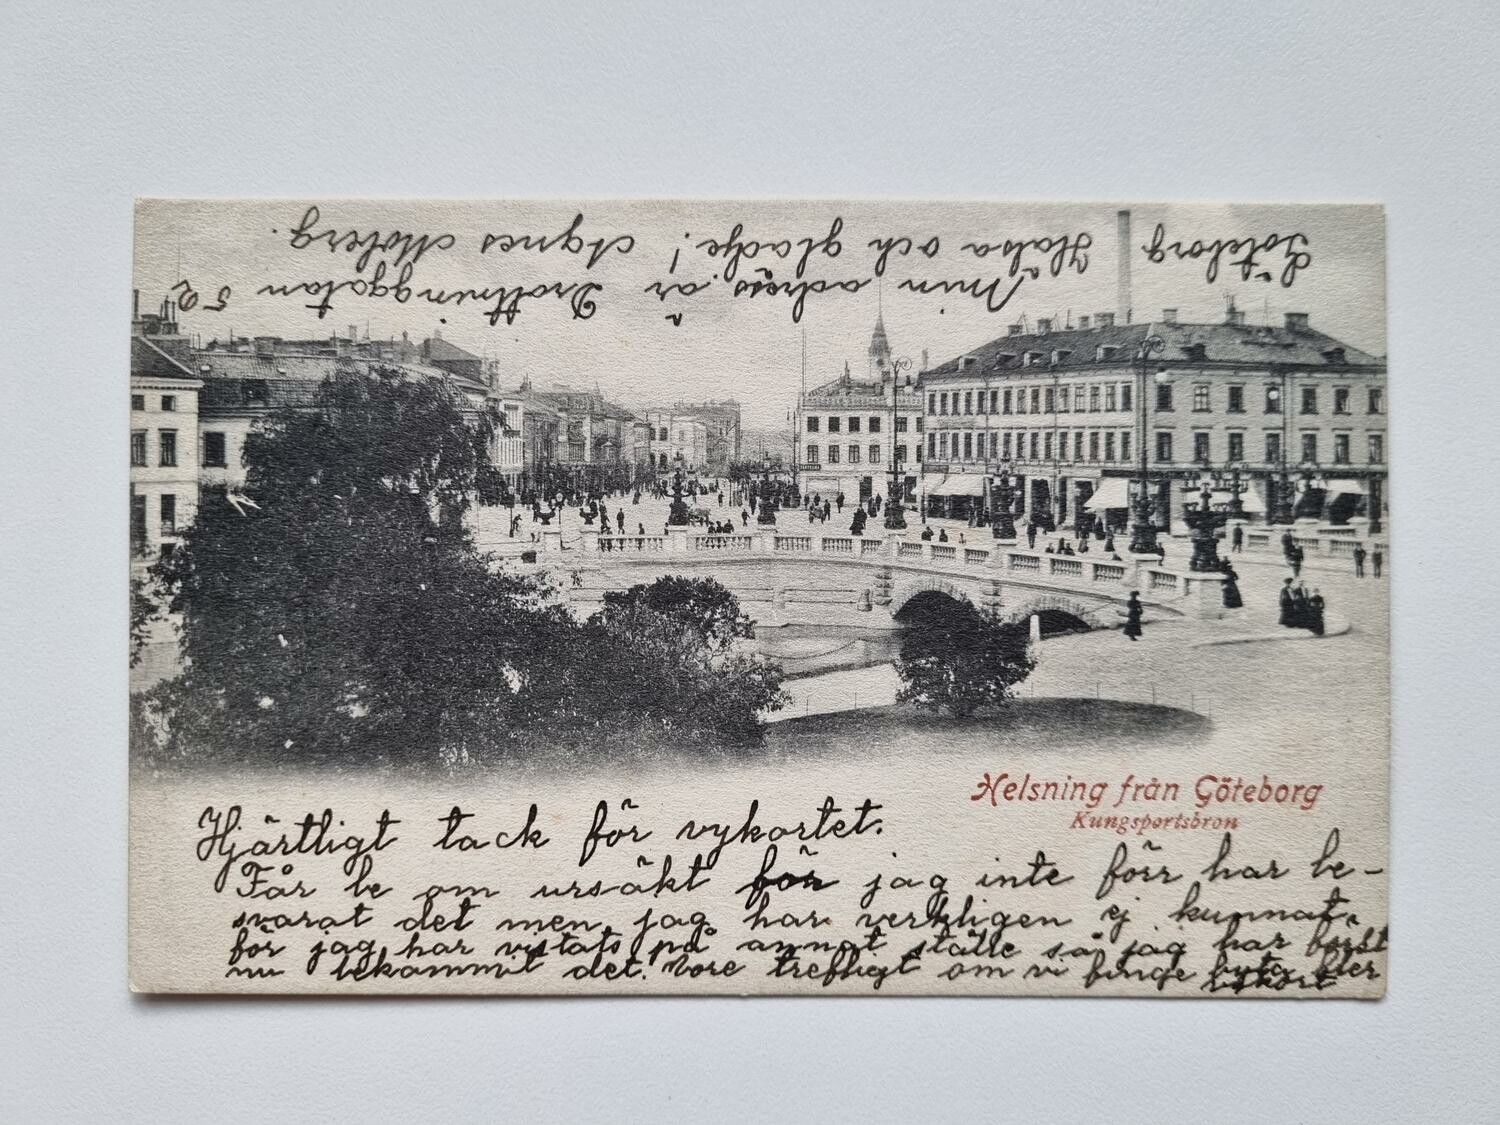 Helsning från Göteborg
Kungsportsbron
Hjärtligt tack för vykortet.
Får be om ursäkt för jag inte förr har be-
svarat det men jag har verkligen ej kunnat,
för jag har vistats på annat ställe så jag har först
nu bekommit det. Vore trefligt om vi finge byta fler
vykort
Min adress är Drottninggatan 52
Göteborg Hälsa och gladje! Agnes Moberg.